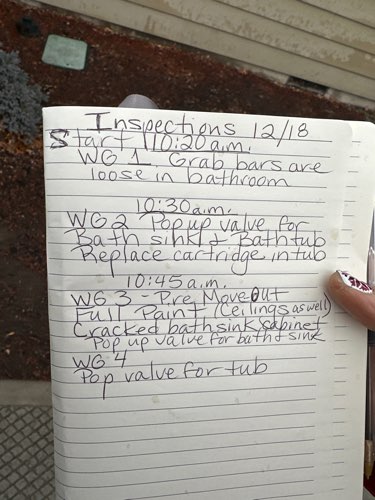 Inspections 12/18
Start 10:20 a.m.
WG 1 Grab bars are
loose in bathroom
10:30 a.m.
WG 2 Pop up valve for
Bath sink & Bathtub
Replace cartridge in tub
10:45 a.m.
WG 3 - Pre Move Out
Full Paint (Ceilings as well)
Cracked bath sink cabinet
Pop up valve for bath sink
WG 4
Pop valve for tub